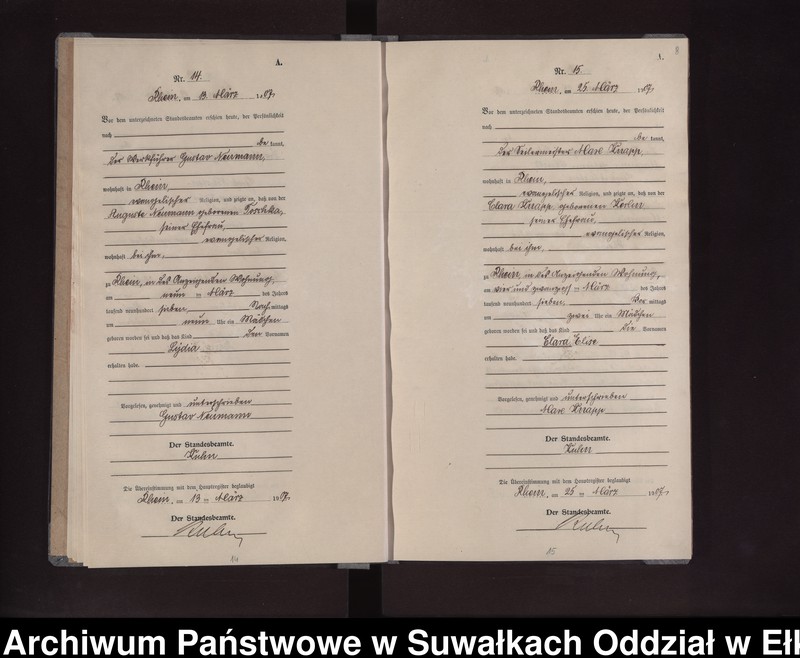 A.
Nr. 14.
Rhein, am 13. März 1907.
Vor dem unterzeichneten Standesbeamten erschien heute, der Persönlichkeit
nach
be kannt,
der Werkführer Gustav Neumann,
wohnhaft in Rhein,
evangelischer Religion, und zeigte an, daß von der
Auguste Neumann geborenen
seiner Ehefrau,
evangelischer Religion,
wohnhaft bei ihm,
zu Rhein, in des Anzeigenden Wohnung,
am neun ten März des Jahres
tausend neunhundert sieben Nach mittags
um neun Uhr ein Mädchen
geboren worden sei und daß das Kind den Vornamen
Lydia
erhalten habe.
Vorgelesen, genehmigt und unterschrieben
Gustav Neumann
Der Standesbeamte.
Kuhn
Die Übereinstimmung mit dem Hauptregister beglaubigt
Rhein, am 13 ten März 1907.
Der Standesbeamte.
Kuhn
14
8
A.
Nr. 15.
Rhein, am 25. März 1907.
Vor dem unterzeichneten Standesbeamten erschien heute, der Persönlichkeit
nach
be kannt,
der Seilermeister Max Knapp,
wohnhaft in Rhein,
evangelischer Religion, und zeigte an, daß von der
Clara Knapp geborenen
seiner Ehefrau,
evangelischer Religion,
wohnhaft bei ihm,
zu Rhein, in des Anzeigenden Wohnung,
am vier und zwanzigsten März des Jahres
tausend neunhundert sieben Vor mittags
um zwei Uhr ein Mädchen
geboren worden sei und daß das Kind die Vornamen
Clara Elise
erhalten habe.
Vorgelesen, genehmigt und unterschrieben
Max Knapp
Der Standesbeamte.
Kuhn
Die Übereinstimmung mit dem Hauptregister beglaubigt
Rhein, am 25 ten März 1907.
Der Standesbeamte.
Kuhn
15
Archiwum Państwowe w Suwałkach Oddział w Ełk